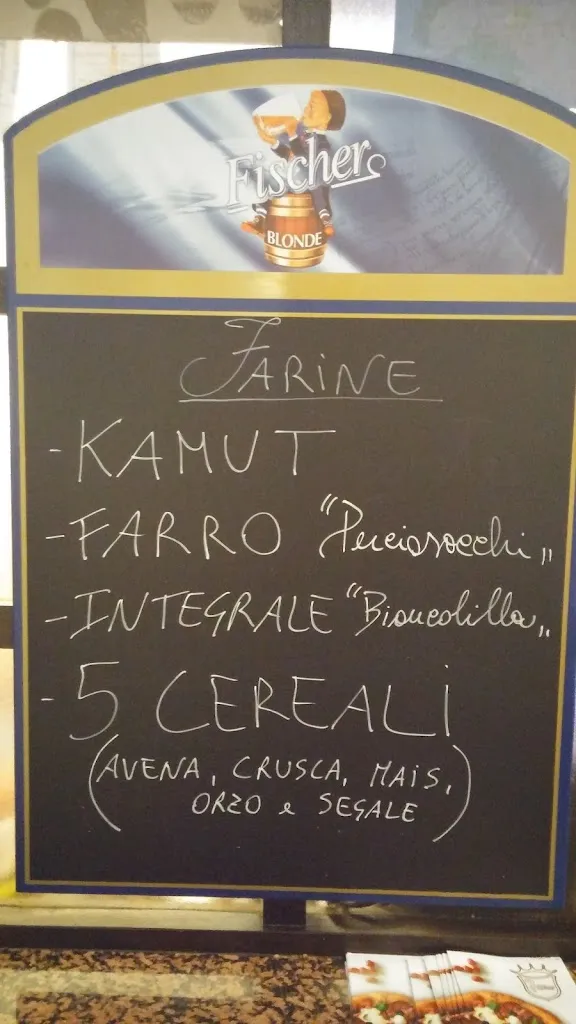 Fischer
BLONDE
FARINE
- KAMUT
- FARRO "Perciasacchi"
- INTEGRALE "Biancolilla"
- 5 CEREALI
(AVENA, CRUSCA, MAIS,
ORZO e SEGALE)